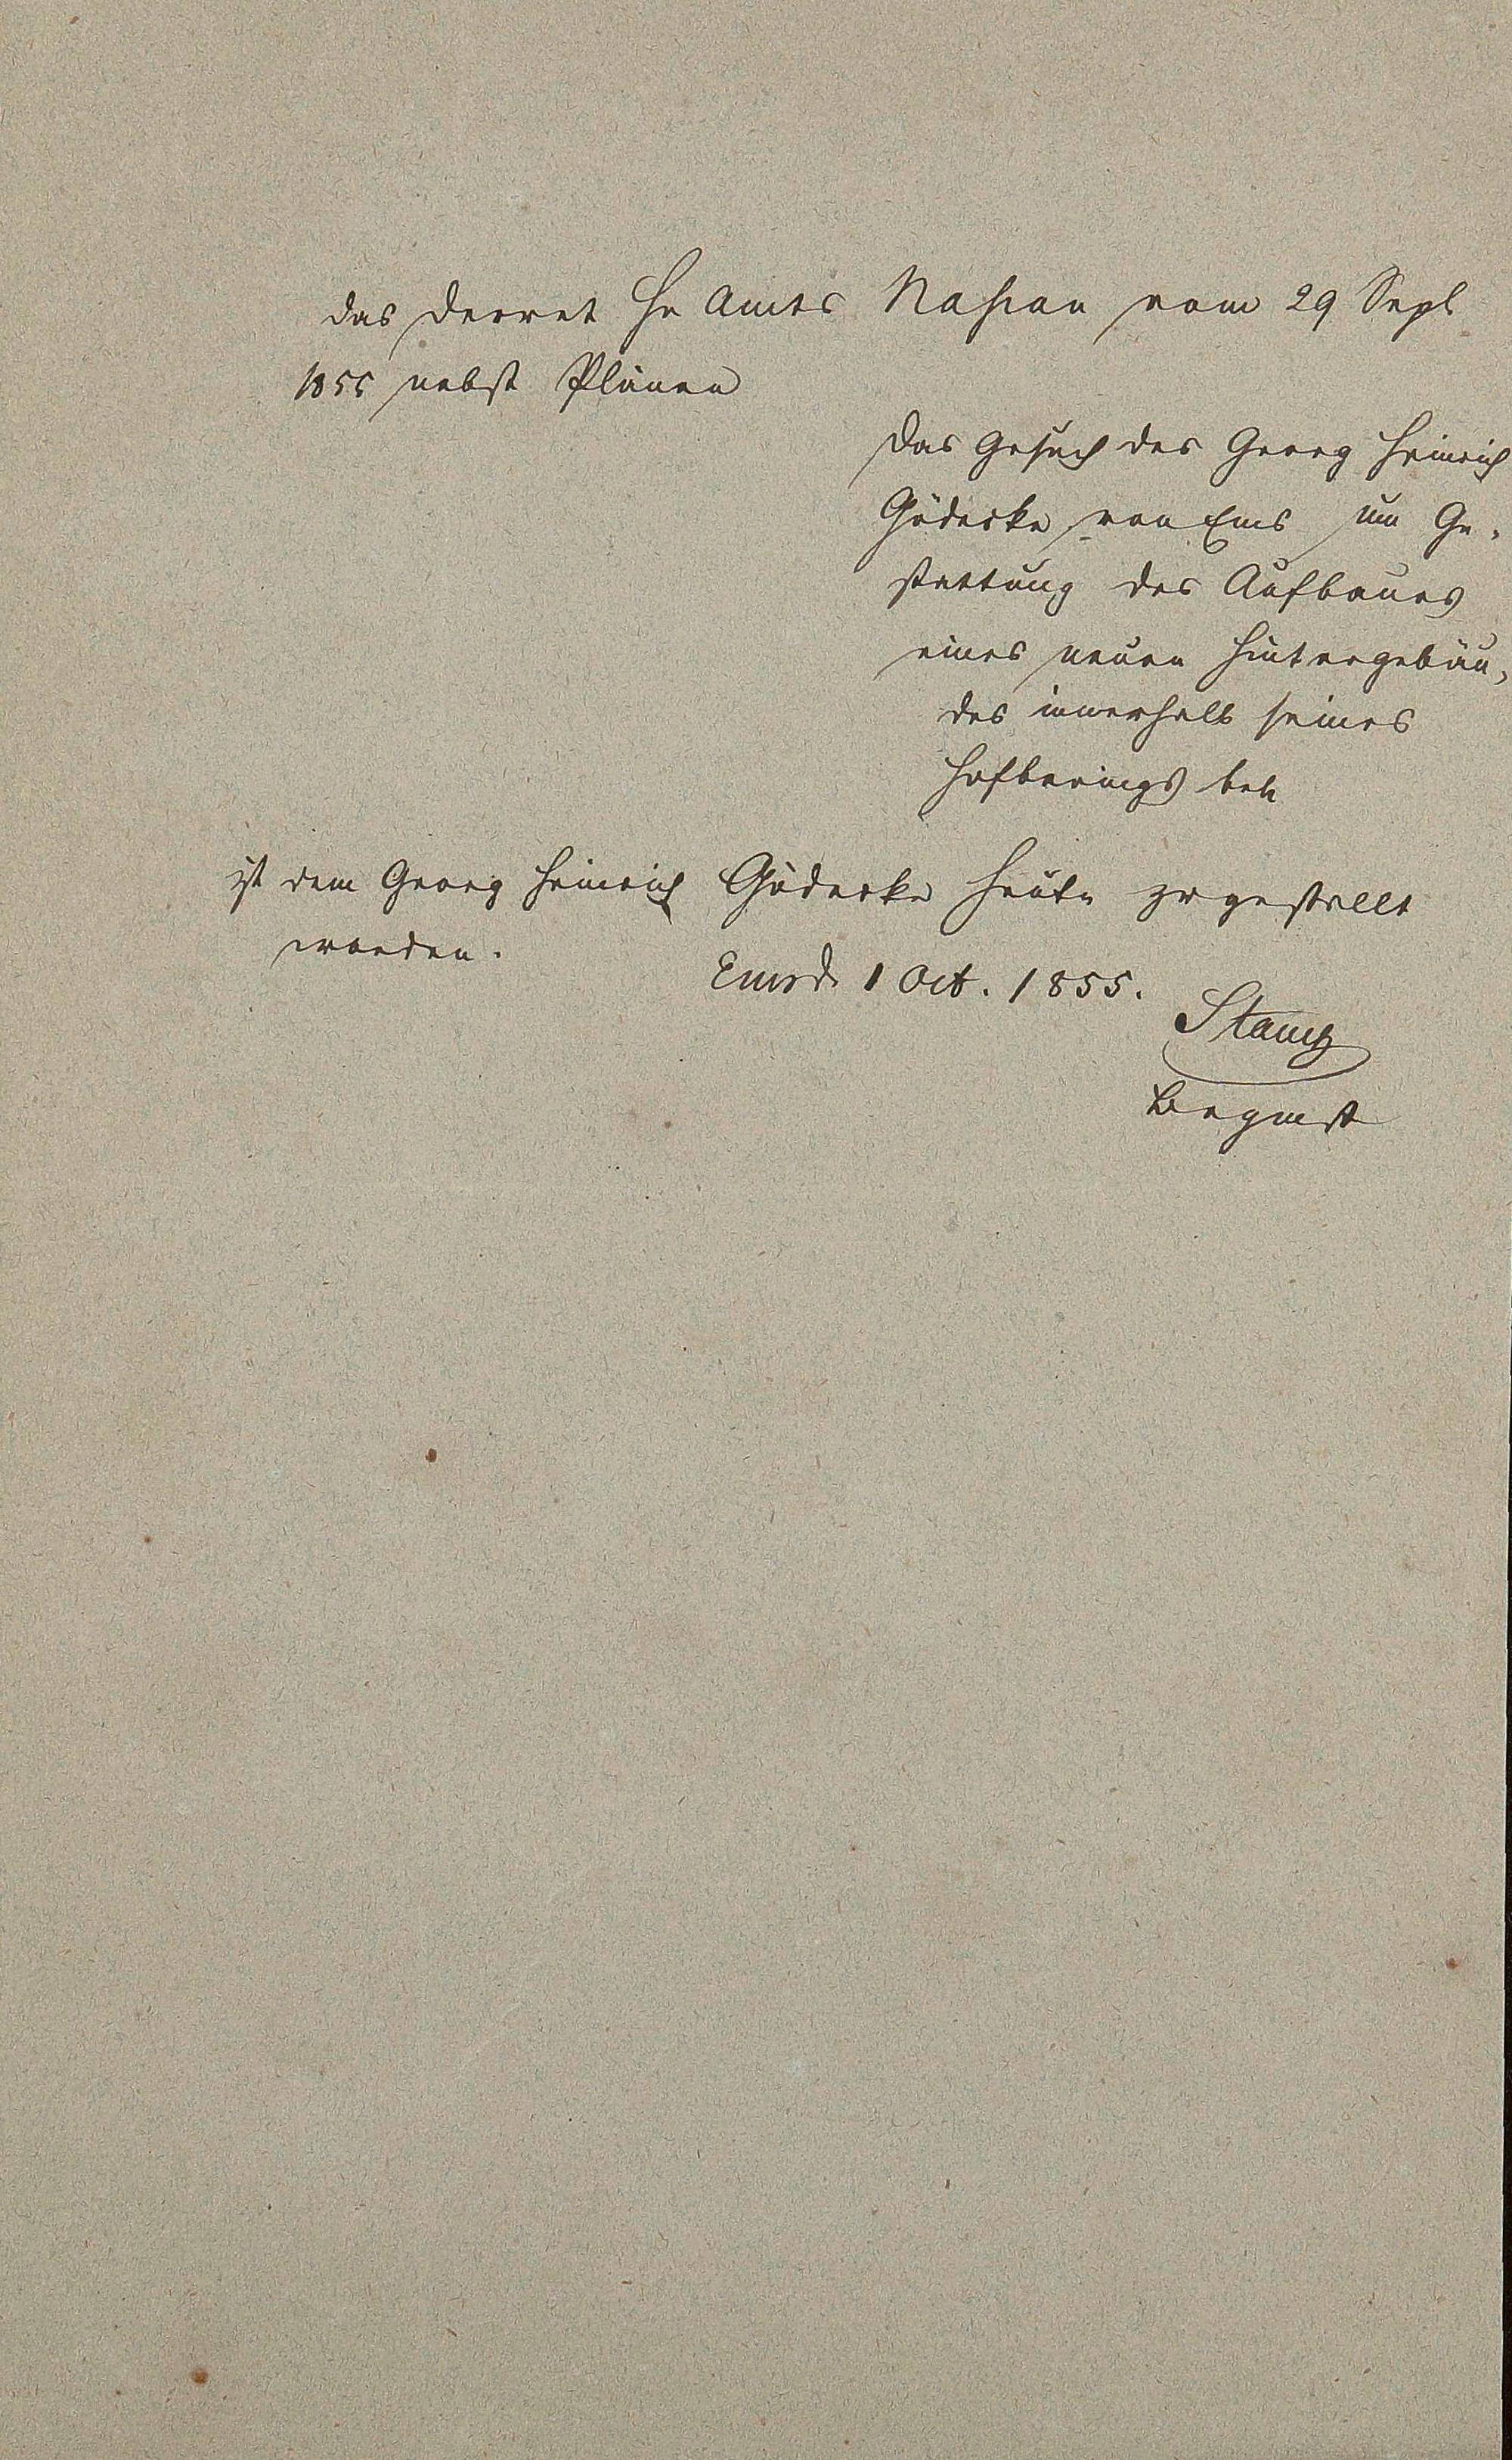 das Decret Hr Amts Nassau vom 29 Sept
1855 nebst Plänen
Das Gesuch des Georg Heinrich
Gödecke von Ems um Ge-
stattung des Aufbaues
eines neuen Hintergebäu-
des innerhalb seines
Hofberings betr
ist dem Georg Heinrich Gödecke heute zugestellt
worden.
Ems d 1 Oct. 1855.
Brgmst